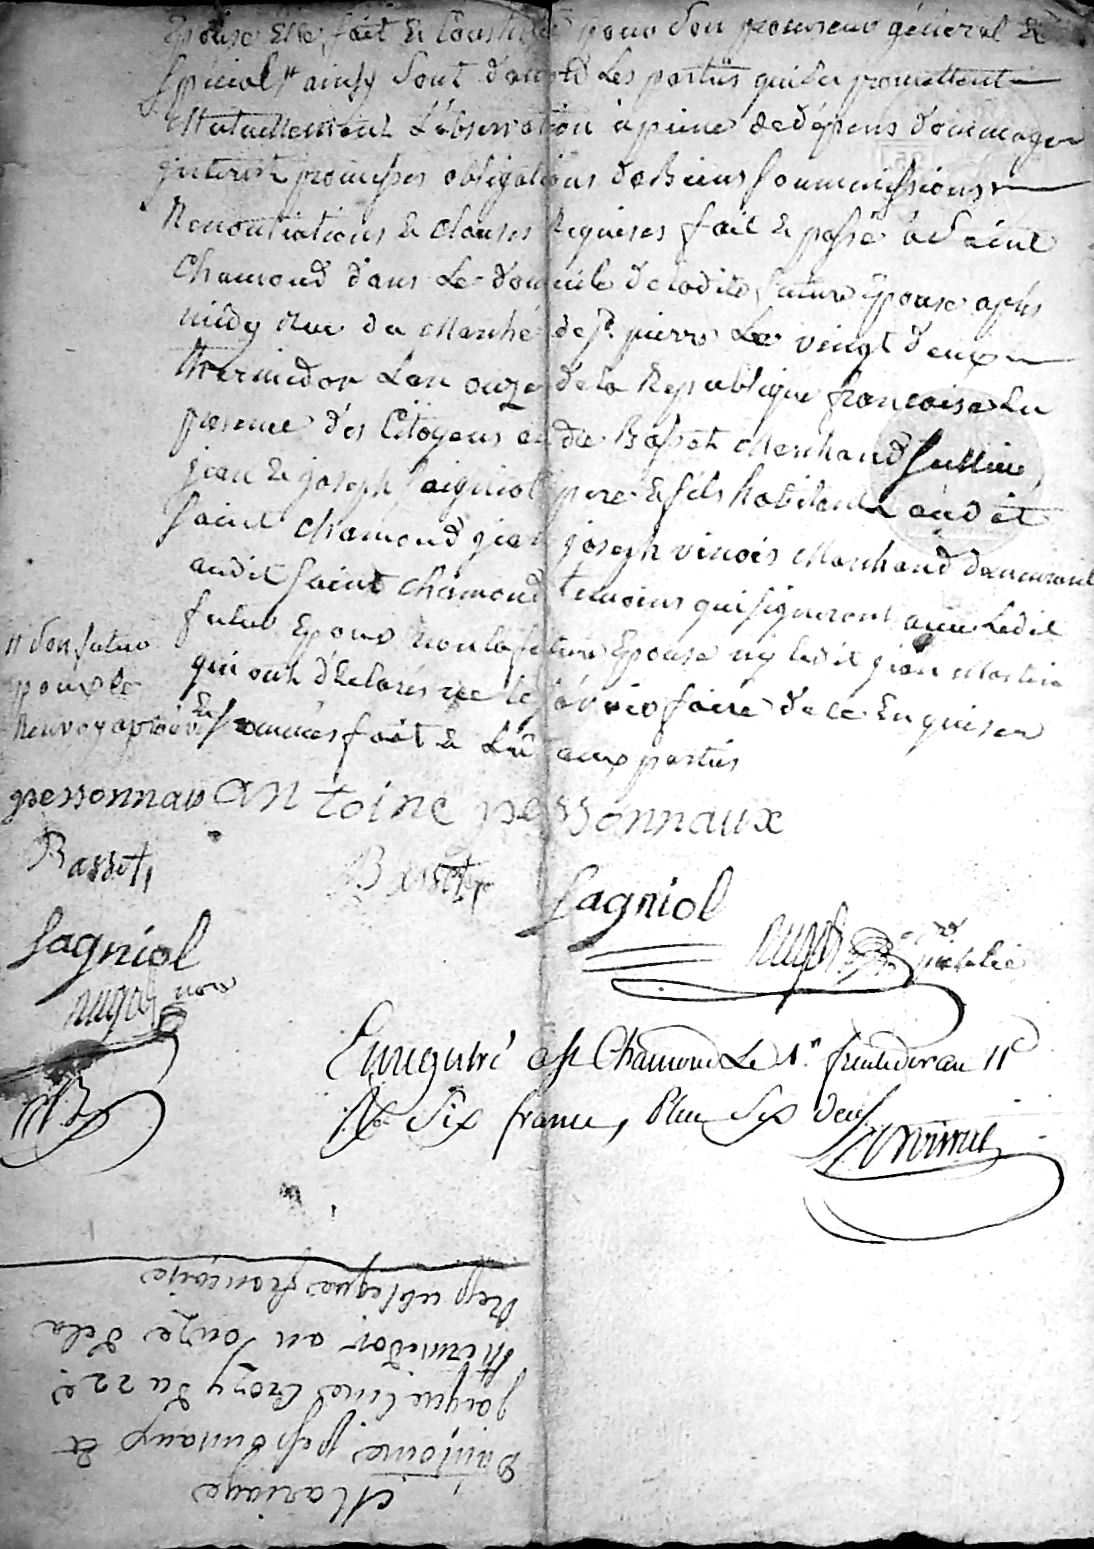 Epouse Elle fait & Constitue pour Son procureur général &
Spécial # ainsy Sont d'accord Les parties qui les promettent
Mutuellement L'observation à peine de dépens dommages
interest promesses obligations de Biens Soummissions
Renontiations & clauses Requises fait & passé à Saint
Chamond dans Le domicile de ladite future Epouse après
midy Rue du Marché de St. pierre Le vingt deux
thermidor L'an onze de la Republique francoise En
présence des Citoyens Basset Marchand
jean & joseph Saigniol pere & fils habitant audit
Saint Chamond jean joseph vinois Marchand demeurant
audit Saint Chamond temoins qui signeront avec Ledit
futur Epoux non la future Epouse ny ledit jean
qui ont déclarés ne le sçavoir faire de ce Enquis &
Et Sommés fait & Lû aux parties
# Son futur
Epoux le
Renvoy aprouvé
pessonnaux antoine pessonnaux
Basset Basset
Sagniol
Sagniol
publié
Enregistré à St Chamond Le 1er. fructidor an 11
Rs. Six francs, Plus Six
Mariage
D'antoine pessonnaux &
jaqueline Crozy du 22e
thermidor an onze de la
Republique francoise